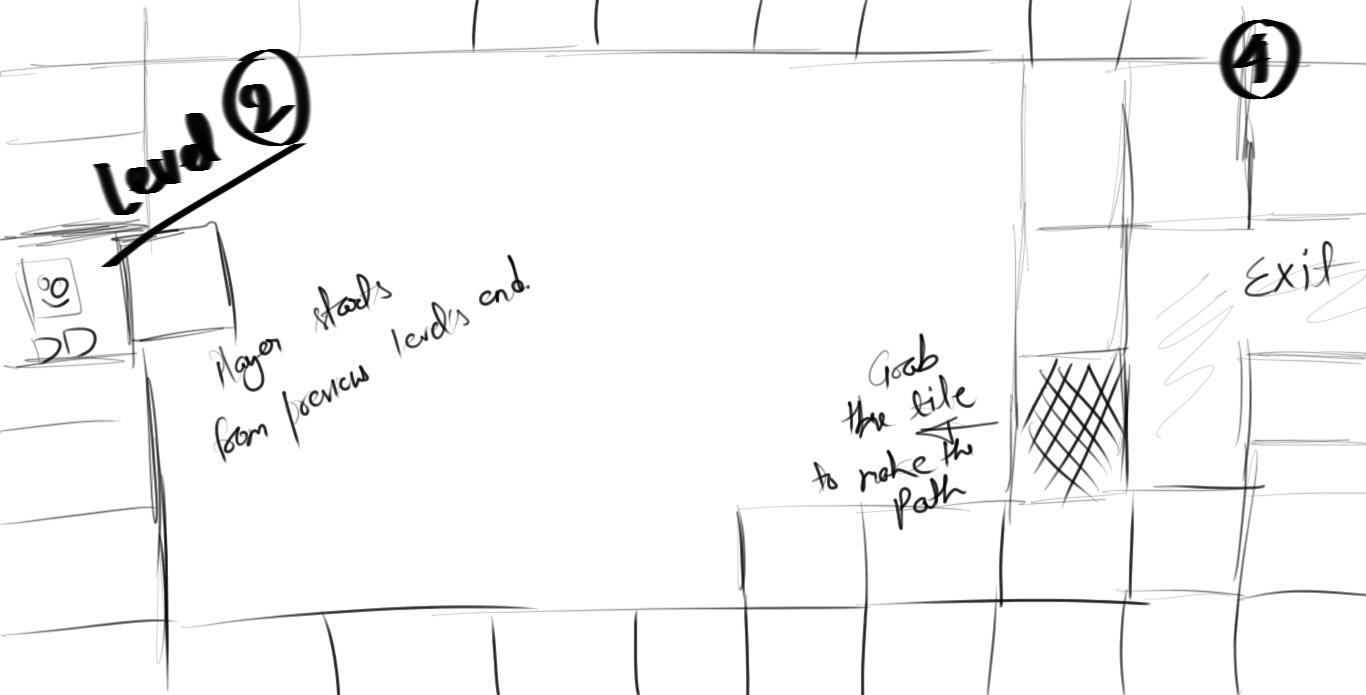 Level 2
4
Exit
Player starts
from previous level's end.
Grab
the tile
to make the
Path